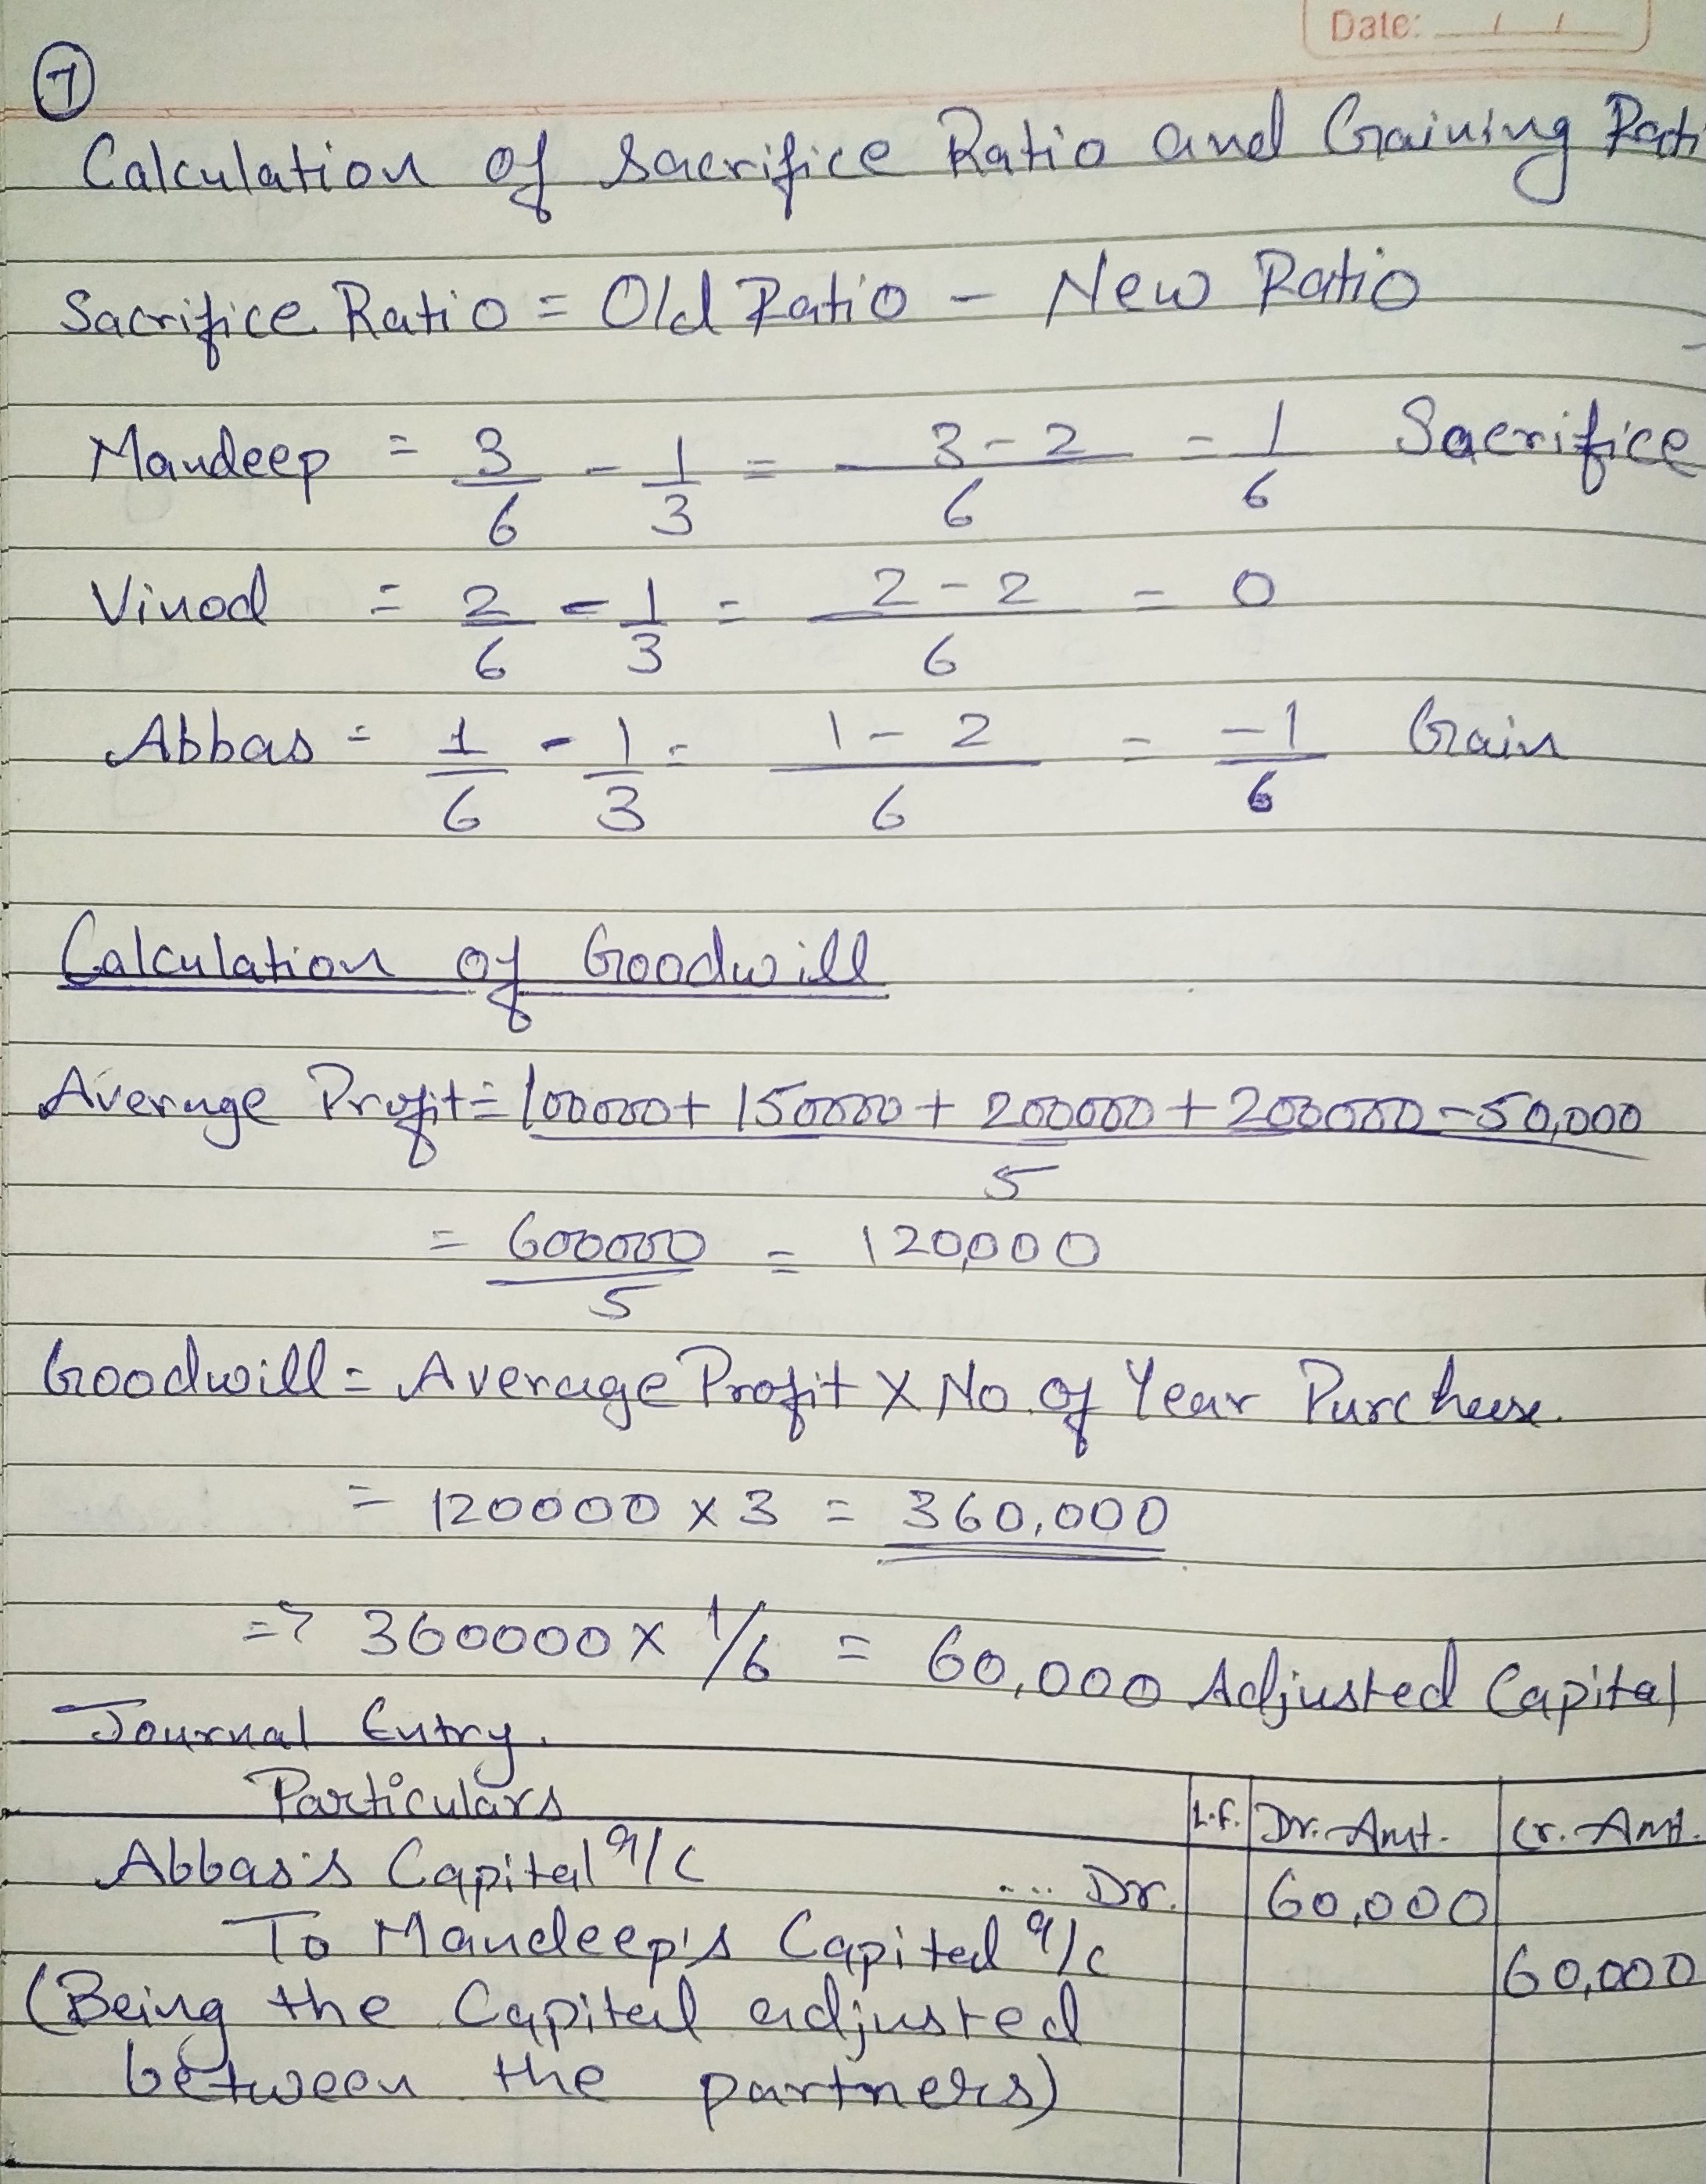 Date: / /
7
Calculation of Sacrifice Ratio and Gaining Rati
Sacrifice Ratio = Old Ratio - New Ratio
Mandeep = 3/6 - 1/3 = 3-2/6 = 1/6 Sacrifice
Vinod = 2/6 - 1/3 = 2-2/6 = 0
Abbas = 1/6 - 1/3 = 1-2/6 = -1/6 Gain
Calculation of Goodwill
Average Profit = 100000 + 150000 + 200000 + 200000 - 50,000
5
= 600000/5 = 120,000
Goodwill = Average Profit X No. of Year Purchase.
= 120000 x 3 = 360,000
=> 360000 x 1/6 = 60,000 Adjusted Capital
Journal Entry.
Particulars L.F. Dr. Amt. Cr. Amt.
Abbas's Capital a/c .... Dr. 60,000
To Mandeep's Capital a/c 60,000
(Being the Capital adjusted
between the partners)